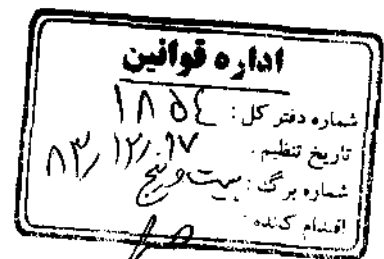 اداره قوانین
شماره دفتر کل: ۱۸۵٤
تاریخ تنظیم: ۸۳/۱۲/۰۱۷
شماره برگ: بیست و پنج
اقدام کننده: